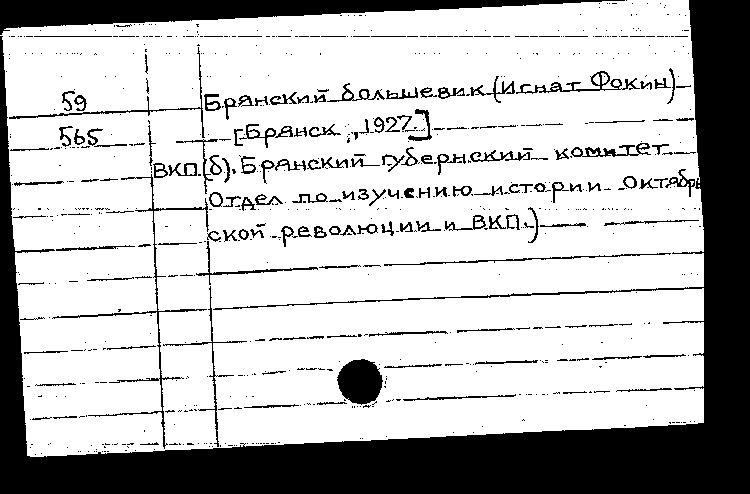 59 Брянский большевик (Игнат Фокин)
565 [Брянск, 1927.]
ВКП(б). Брянский губернский комитет.
Отдел по изучению истории Октябрь
ской революции и ВКП.)